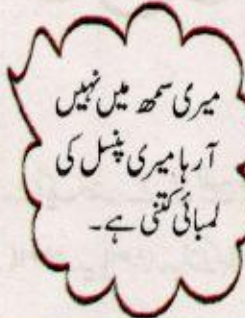 میری سمجھ میں نہیں
آرہا میری پنسل کی
لمبائی کتنی ہے۔